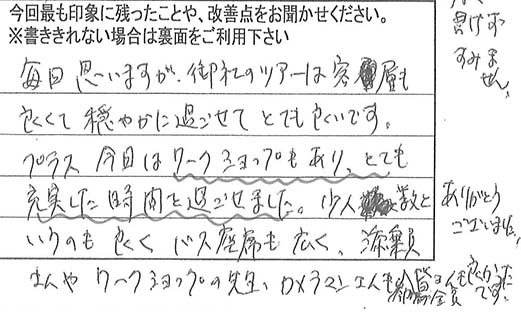 今回最も印象に残ったことや、改善点をお聞かせください。
※書ききれない場合は裏面をご利用下さい
毎回思いますが、御社のツアーは客層も
良くて穏やかに過ごせてとても良いです。
プラス今回はワークショップもあり、とても
充実した時間を過ごせました。少人数と
いうのも良く バス座席も広く、添乗員
さんやワークショップの先生、カメラマンさんも 皆さん良かった
です。
書けず
すみま
せん。
ありがとう
ございました。